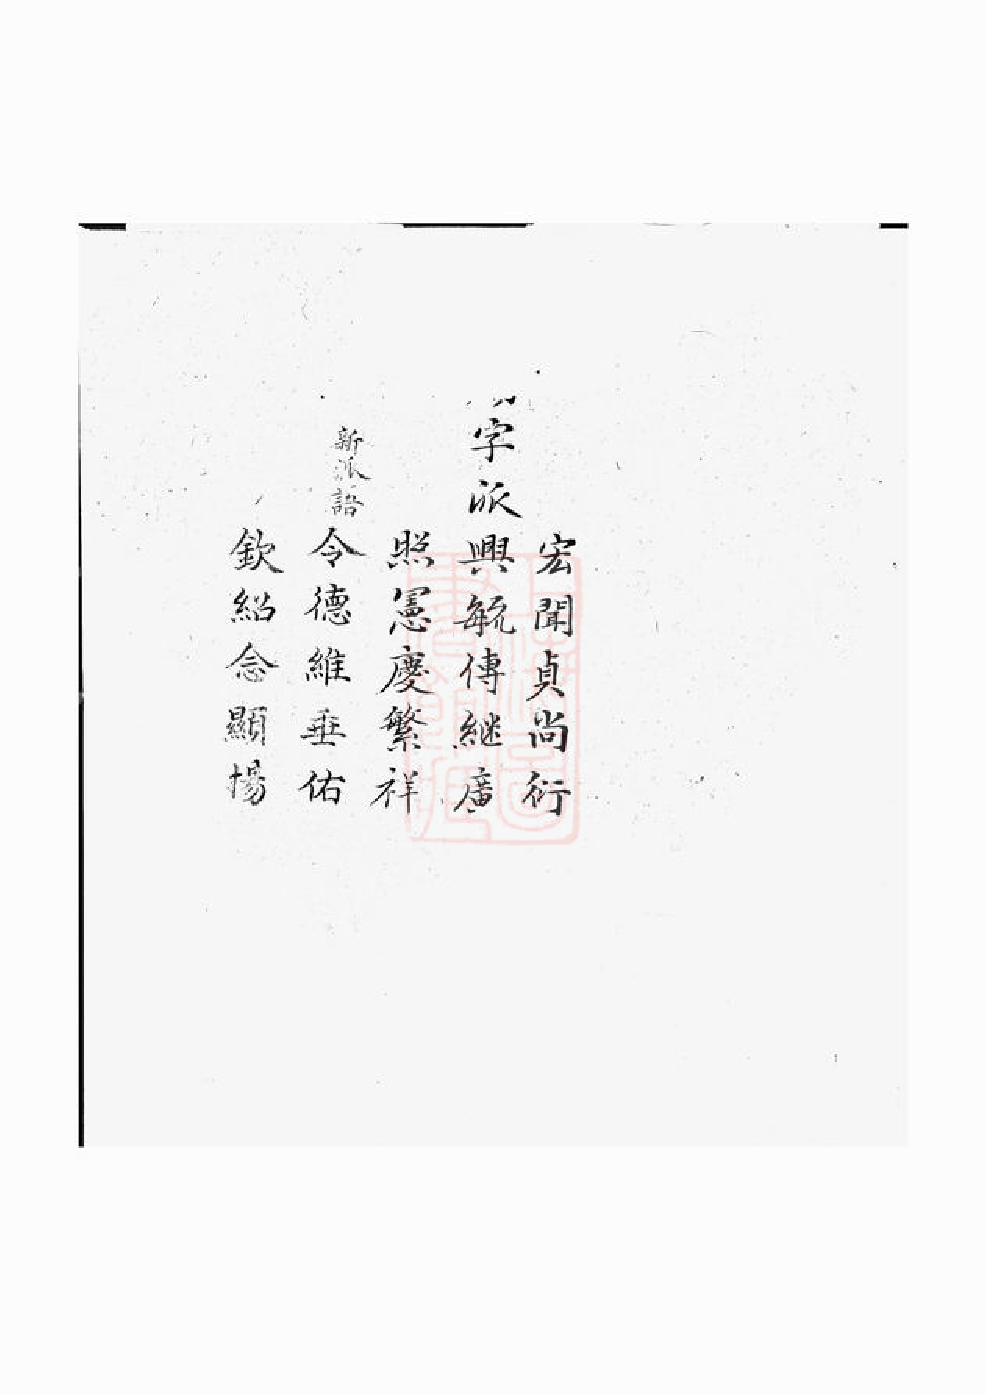 宏聞貞尚衍
字派
興毓傳継廣
照憲慶繁祥
新派語
令德維垂佑
欽紹念顯揚